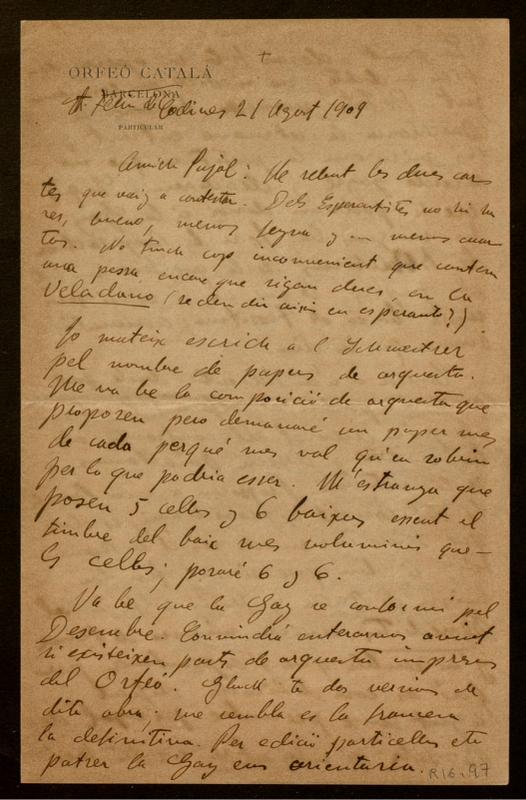 ORFEÓ CATALÁ
BARCELONA
PARTICULAR
St. Feliu de Codines 21 Agost 1909
Amich Pujol: He rebut les dues car
tes que vaig a contestar. Dels Esperantistes no hi ha
res, bueno, menos feyna y menos
No tinch cap inconvenient que cantem
una pessa encare que sigan dues, en la
Veladano (se deu dir aixis en esperanto?).
Jo mateix escrich a l'Schweitzer
pel nombre de papers de orquesta.
Me va be la composició de orquesta que
proposen pero demanaré un paper mes
de cada perqué mes val qu'en sobrin
per lo que podria esser. M'estranya que
posen 5 celles y 6 baixos essent el
timbre del baix mes voluminós que
ls celles; posaré 6 y 6.
Va be que la Gay se conformi pel
Desembre. Convindrá enterarnos aviat
si existeixen parts de orquesta impreses
del Orfeó. Gluck té dos versions de
dita obra; me sembla es la francesa
la definitiva. Per edició particelles etc
potser la Gay ens orientaria.
R16.97